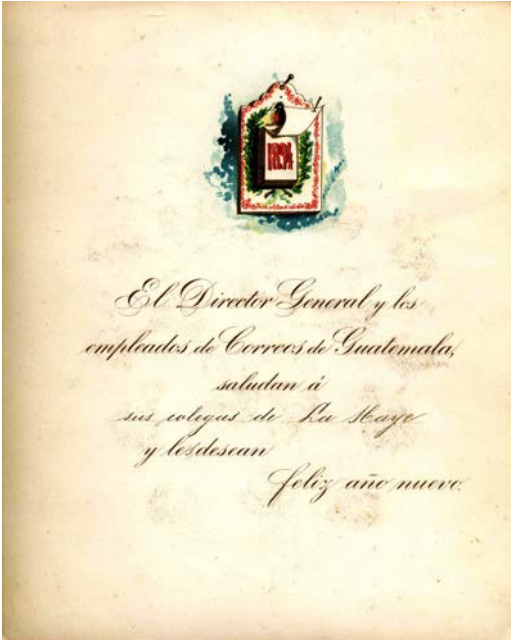 1894
El Director General y los
empleados de Correos de Guatemala,
saludan á
sus colegas de La Haye
y les desean
feliz año nuevo.